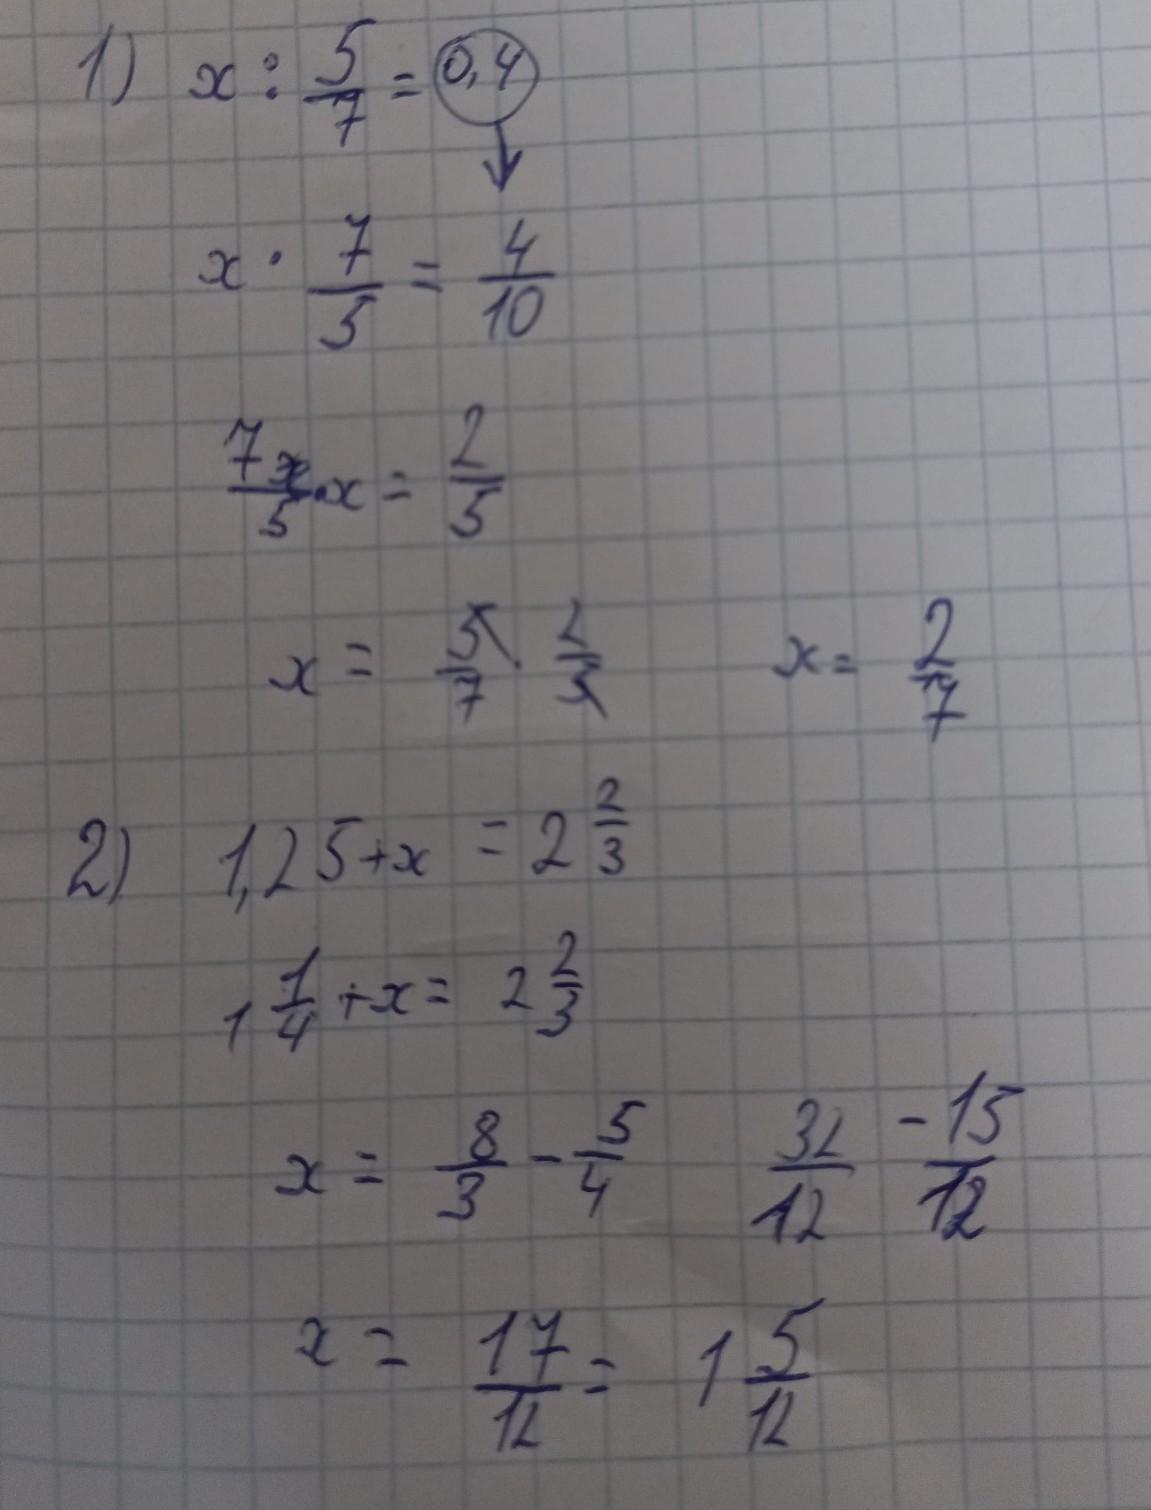 1) x : 5/7 = 0,4
x · 7/5 = 4/10
7/5 · x = 2/5
x = 5/7 · 2/5 x = 2/7
2) 1,25 + x = 2 2/3
1 1/4 + x = 2 2/3
x = 8/3 - 5/4 32/12 - 15/12
x = 17/12 = 1 5/12